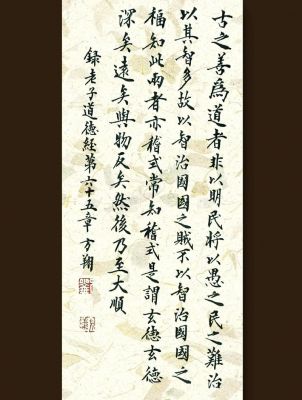 古之善為道者非以明民將以愚之民之難治
以其智多故以智治國國之賊不以智治國國之
福知此兩者亦稽式常知稽式是謂玄德玄德
深矣遠矣與物反矣然後乃至大順
錄老子道德經第六十五章方翔